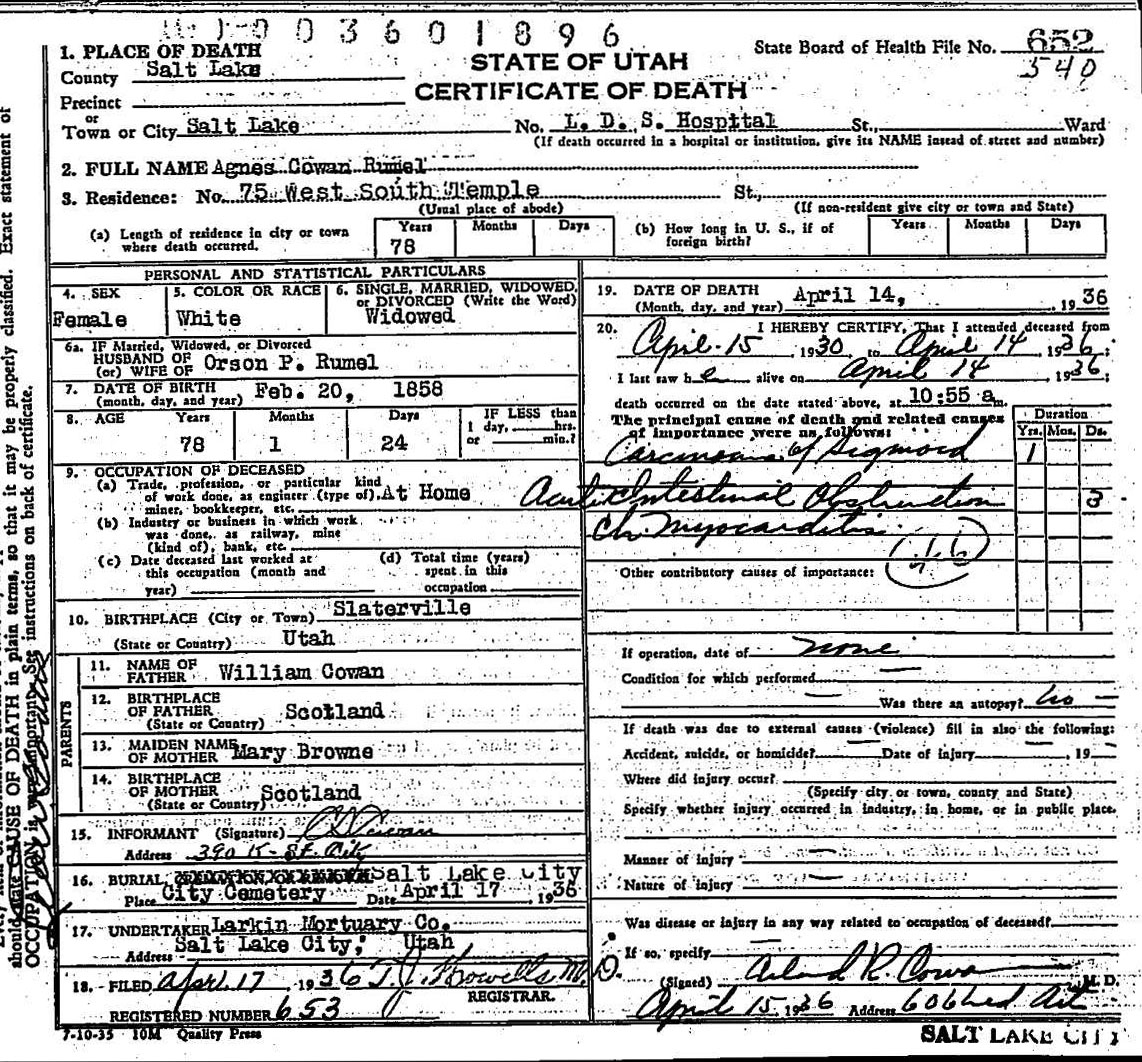 003601896
1. PLACE OF DEATH
County Salt Lake
STATE OF UTAH
CERTIFICATE OF DEATH
State Board of Health File No. 652
540
Precinct
or
Town or City Salt Lake No. L. D. S. Hospital St., Ward
(If death occurred in a hospital or institution, give its NAME insead of street and number)
2. FULL NAME Agnes Cowan Rumel
3. Residence: No. 75 West South Temple St.,
(Usual place of abode) (If non-resident give city or town and State)
(a) Length of residence in city or town where death occurred. Years Months Days
78
(b) How long in U. S., if of foreign birth? Years Months Days
PERSONAL AND STATISTICAL PARTICULARS
4. SEX
Female
5. COLOR OR RACE
White
6. SINGLE, MARRIED, WIDOWED, or DIVORCED (Write the Word)
Widowed
6a. IF Married, Widowed, or Divorced
HUSBAND OF
(or) WIFE OF Orson P. Rumel
7. DATE OF BIRTH
(month, day, and year) Feb. 20, 1858
8. AGE Years Months Days IF LESS than
1 day, hrs.
or min.?
78 1 24
9. OCCUPATION OF DECEASED
(a) Trade, profession, or particular kind
of work done, as engineer (type of), At Home
miner, bookkeeper, etc.
(b) Industry or business in which work
was done, as railway, mine
(kind of), bank, etc.
(c) Date deceased last worked at
this occupation (month and
year)
(d) Total time (years)
spent in this
occupation
10. BIRTHPLACE (City or Town) Slaterville
(State or Country) Utah
PARENTS
11. NAME OF
FATHER William Cowan
12. BIRTHPLACE
OF FATHER
(State or Country) Scotland
13. MAIDEN NAME
OF MOTHER Mary Browne
14. BIRTHPLACE
OF MOTHER
(State or Country) Scotland
15. INFORMANT (Signature) Cowan
Address 390 K - St. City
16. BURIAL Salt Lake City
Place City Cemetery Date April 17, 1936
17. UNDERTAKER Larkin Mortuary Co.
Address Salt Lake City, Utah
18. FILED April 17 1936 T. J. Howells M.D.
REGISTRAR.
REGISTERED NUMBER 653
7-10-35 10M Quality Press
19. DATE OF DEATH
(Month, day, and year) April 14, 1936
20. I HEREBY CERTIFY, That I attended deceased from
April 15 1930 to April 14 1936,
I last saw he alive on April 14 1936;
death occurred on the date stated above, at 10:55 a m.
The principal cause of death and related causes
of importance were as follows:
Duration
Yrs. Mos. Ds.
Carcinoma of Sigmoid 1
Acute Intestinal Obstruction 3
Ch. Myocarditis
46
Other contributory causes of importance:
If operation, date of none
Condition for which performed
Was there an autopsy? no
If death was due to external causes (violence) fill in also the following:
Accident, suicide, or homicide? Date of injury , 19
Where did injury occur?
(Specify city or town, county and State)
Specify whether injury occurred in industry, in home, or in public place.
Manner of injury
Nature of injury
Was disease or injury in any way related to occupation of deceased?
If so, specify
(Signed) Leland R. Cowan M. D.
April 15 1936 Address 606 Med Art
SALT LAKE CITY
should state CAUSE OF DEATH in plain terms, so that it may be properly classified. Exact statement of
OCCUPATION is very important. See instructions on back of certificate.